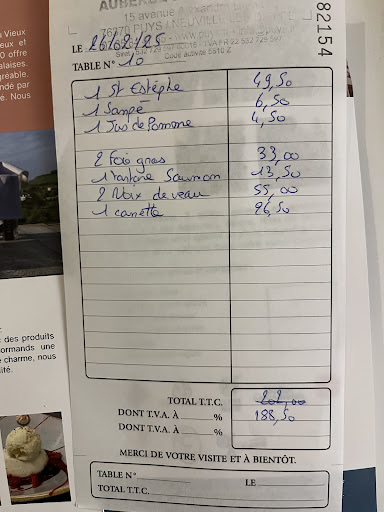 AUBERGE
15 avenue Alexandre
76370 PUYS / NEUVILLE
Siret 532 729 597 00015 - TVA FR 22 532 729 597
Code activité 5510 Z
82154
LE 26/62/25
TABLE N° 10
1 St Estèphe 49,50
1 Sanpé 6,50
1 Jus de Pomme 4,50
2 Foie gras 33,00
1 Tartare Saumon 13,50
2 Noix de veau 55,00
1 canette 26,50
TOTAL T.T.C. 202,00
DONT T.V.A. À % 188,50
DONT T.V.A. À %
MERCI DE VOTRE VISITE ET À BIENTÔT.
TABLE N° LE
TOTAL T.T.C.
u Vieux
eux et
0 offre
alaises.
gréable.
ndé par
e. Nous
des produits
ormands une
charme, nous
ité.